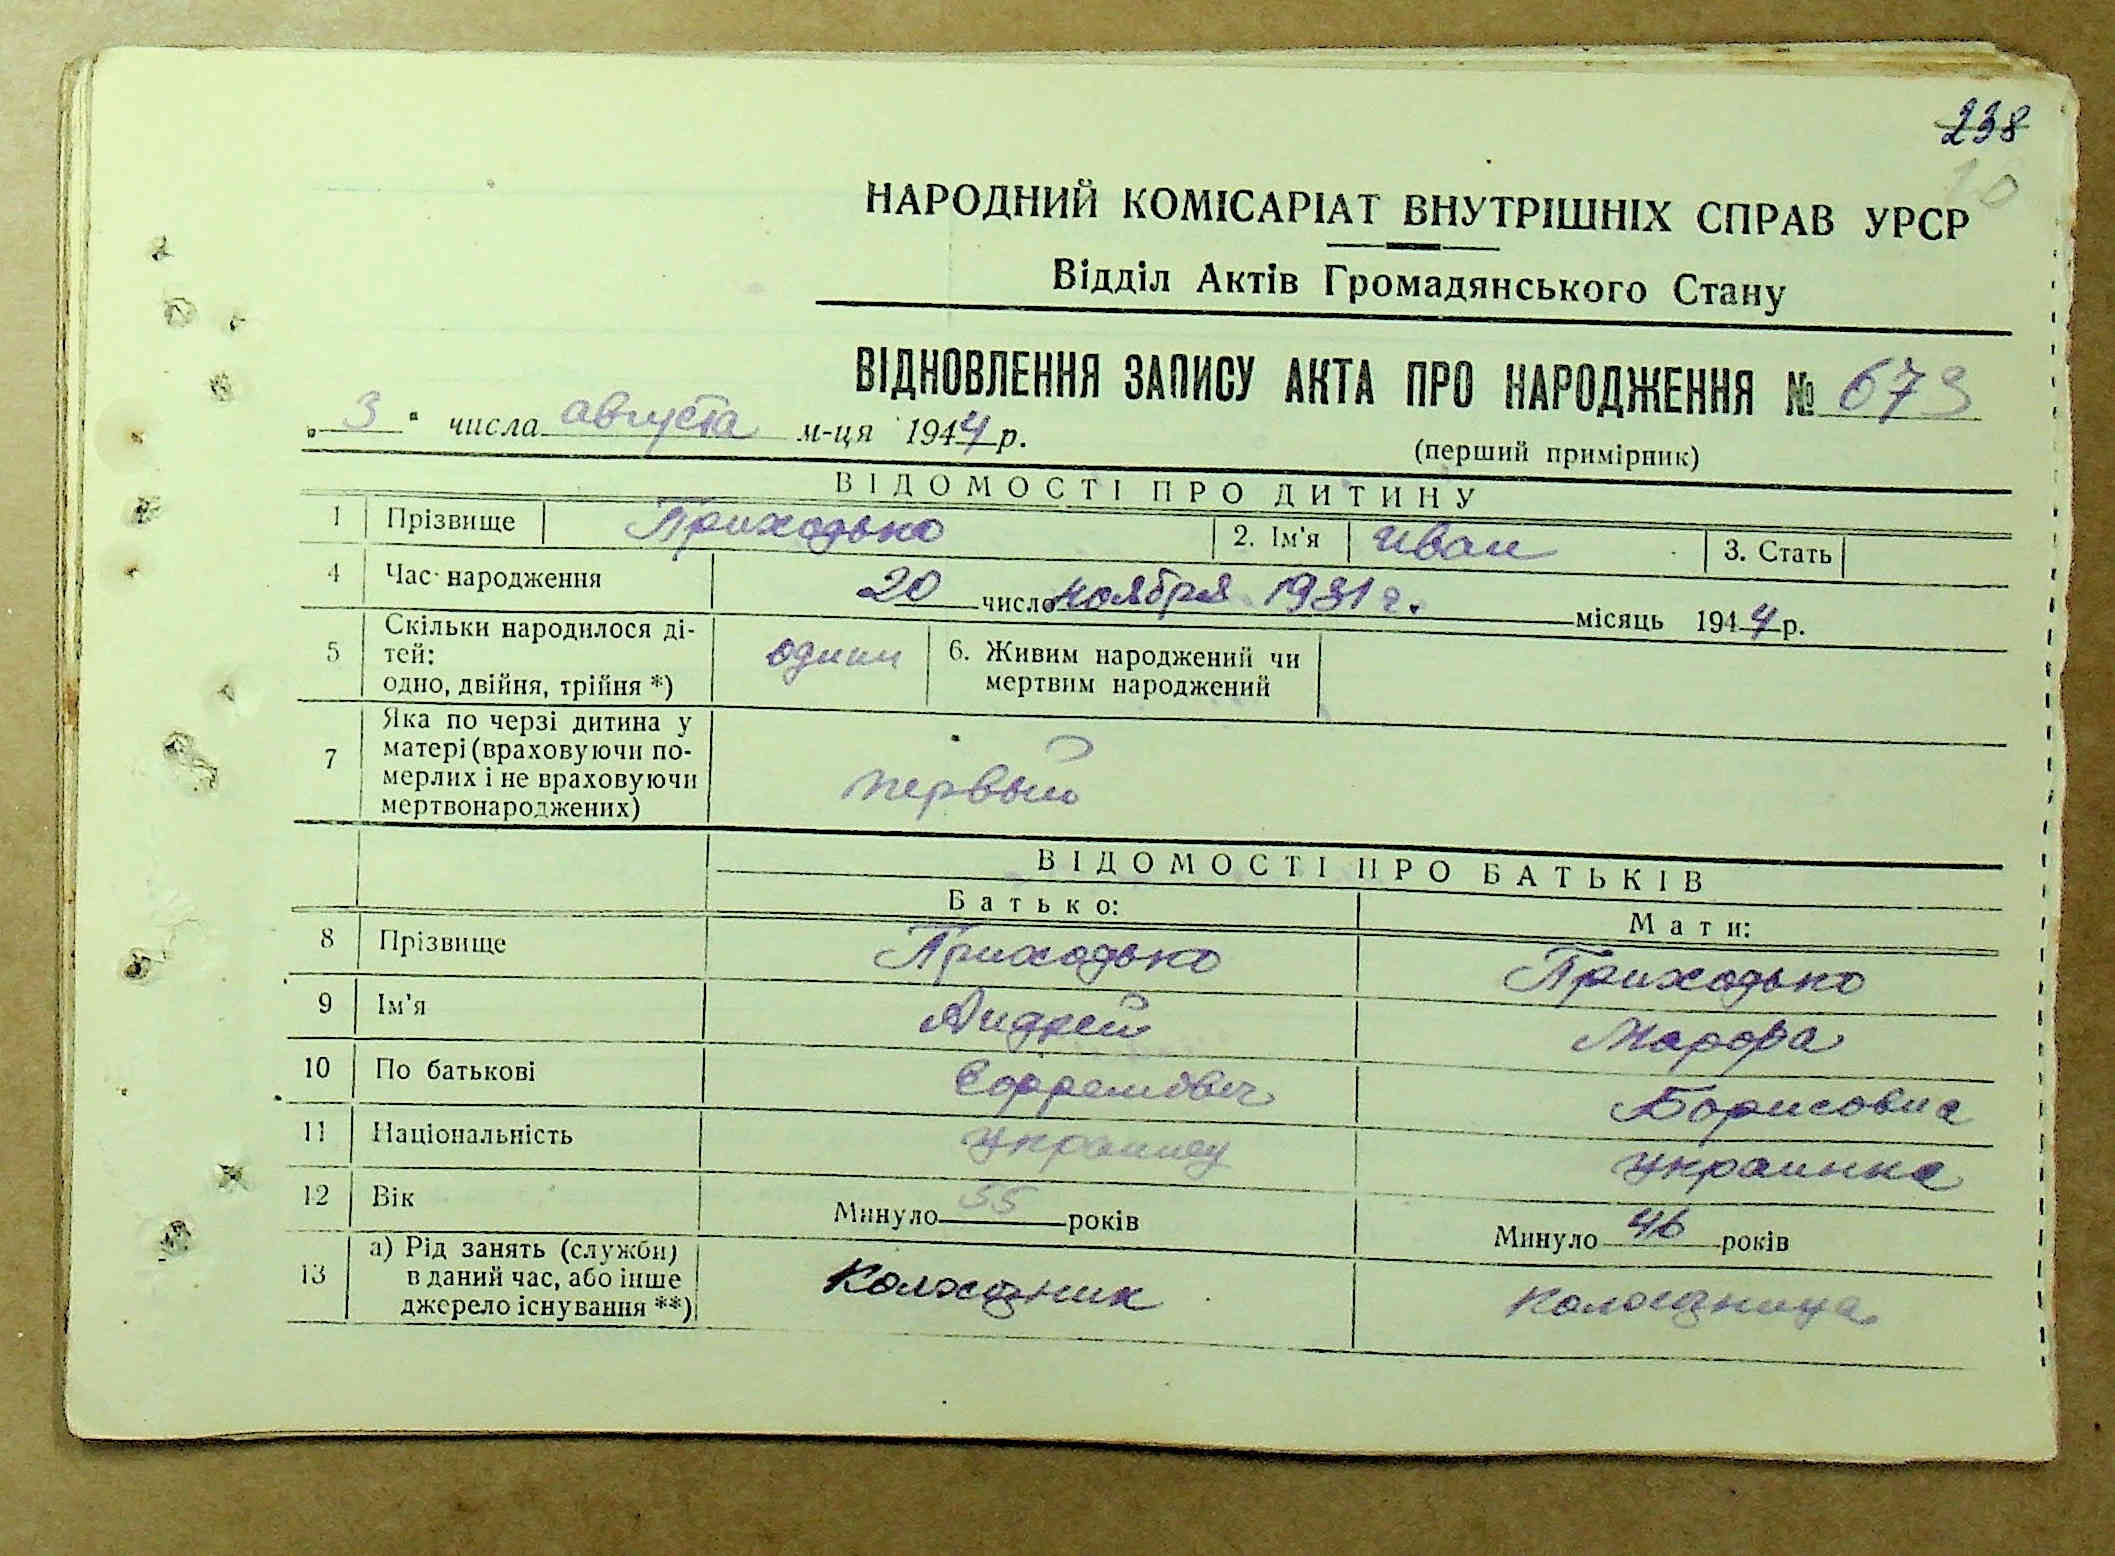 238
НАРОДНИЙ КОМІСАРІАТ ВНУТРІШНІХ СПРАВ УРСР
Відділ Актів Громадянського Стану
ВІДНОВЛЕННЯ ЗАПИСУ АКТА ПРО НАРОДЖЕННЯ № 673
„ 3 “ числа августа м-ця 1944 р.
(перший примірник)
ВІДОМОСТІ ПРО ДИТИНУ
1 Прізвище Приходько 2. Ім'я Иван 3. Стать
4 Час народження 20 число ноября 1931 г. місяць 1944 р.
5 Скільки народилося ді-
тей:
одно, двійня, трійня *) один 6. Живим народжений чи
мертвим народжений
7 Яка по черзі дитина у
матері (враховуючи по-
мерлих і не враховуючи
мертвонароджених) первый
ВІДОМОСТІ ПРО БАТЬКІВ
Батько: Мати:
8 Прізвище Приходько Приходько
9 Ім'я Андрей
10 По батькові Борисовна
11 Національність украинец украинка
12 Вік Минуло 55 років Минуло 46 років
13 а) Рід занять (служби)
в даний час, або інше
джерело існування **) Колхозник колхозница